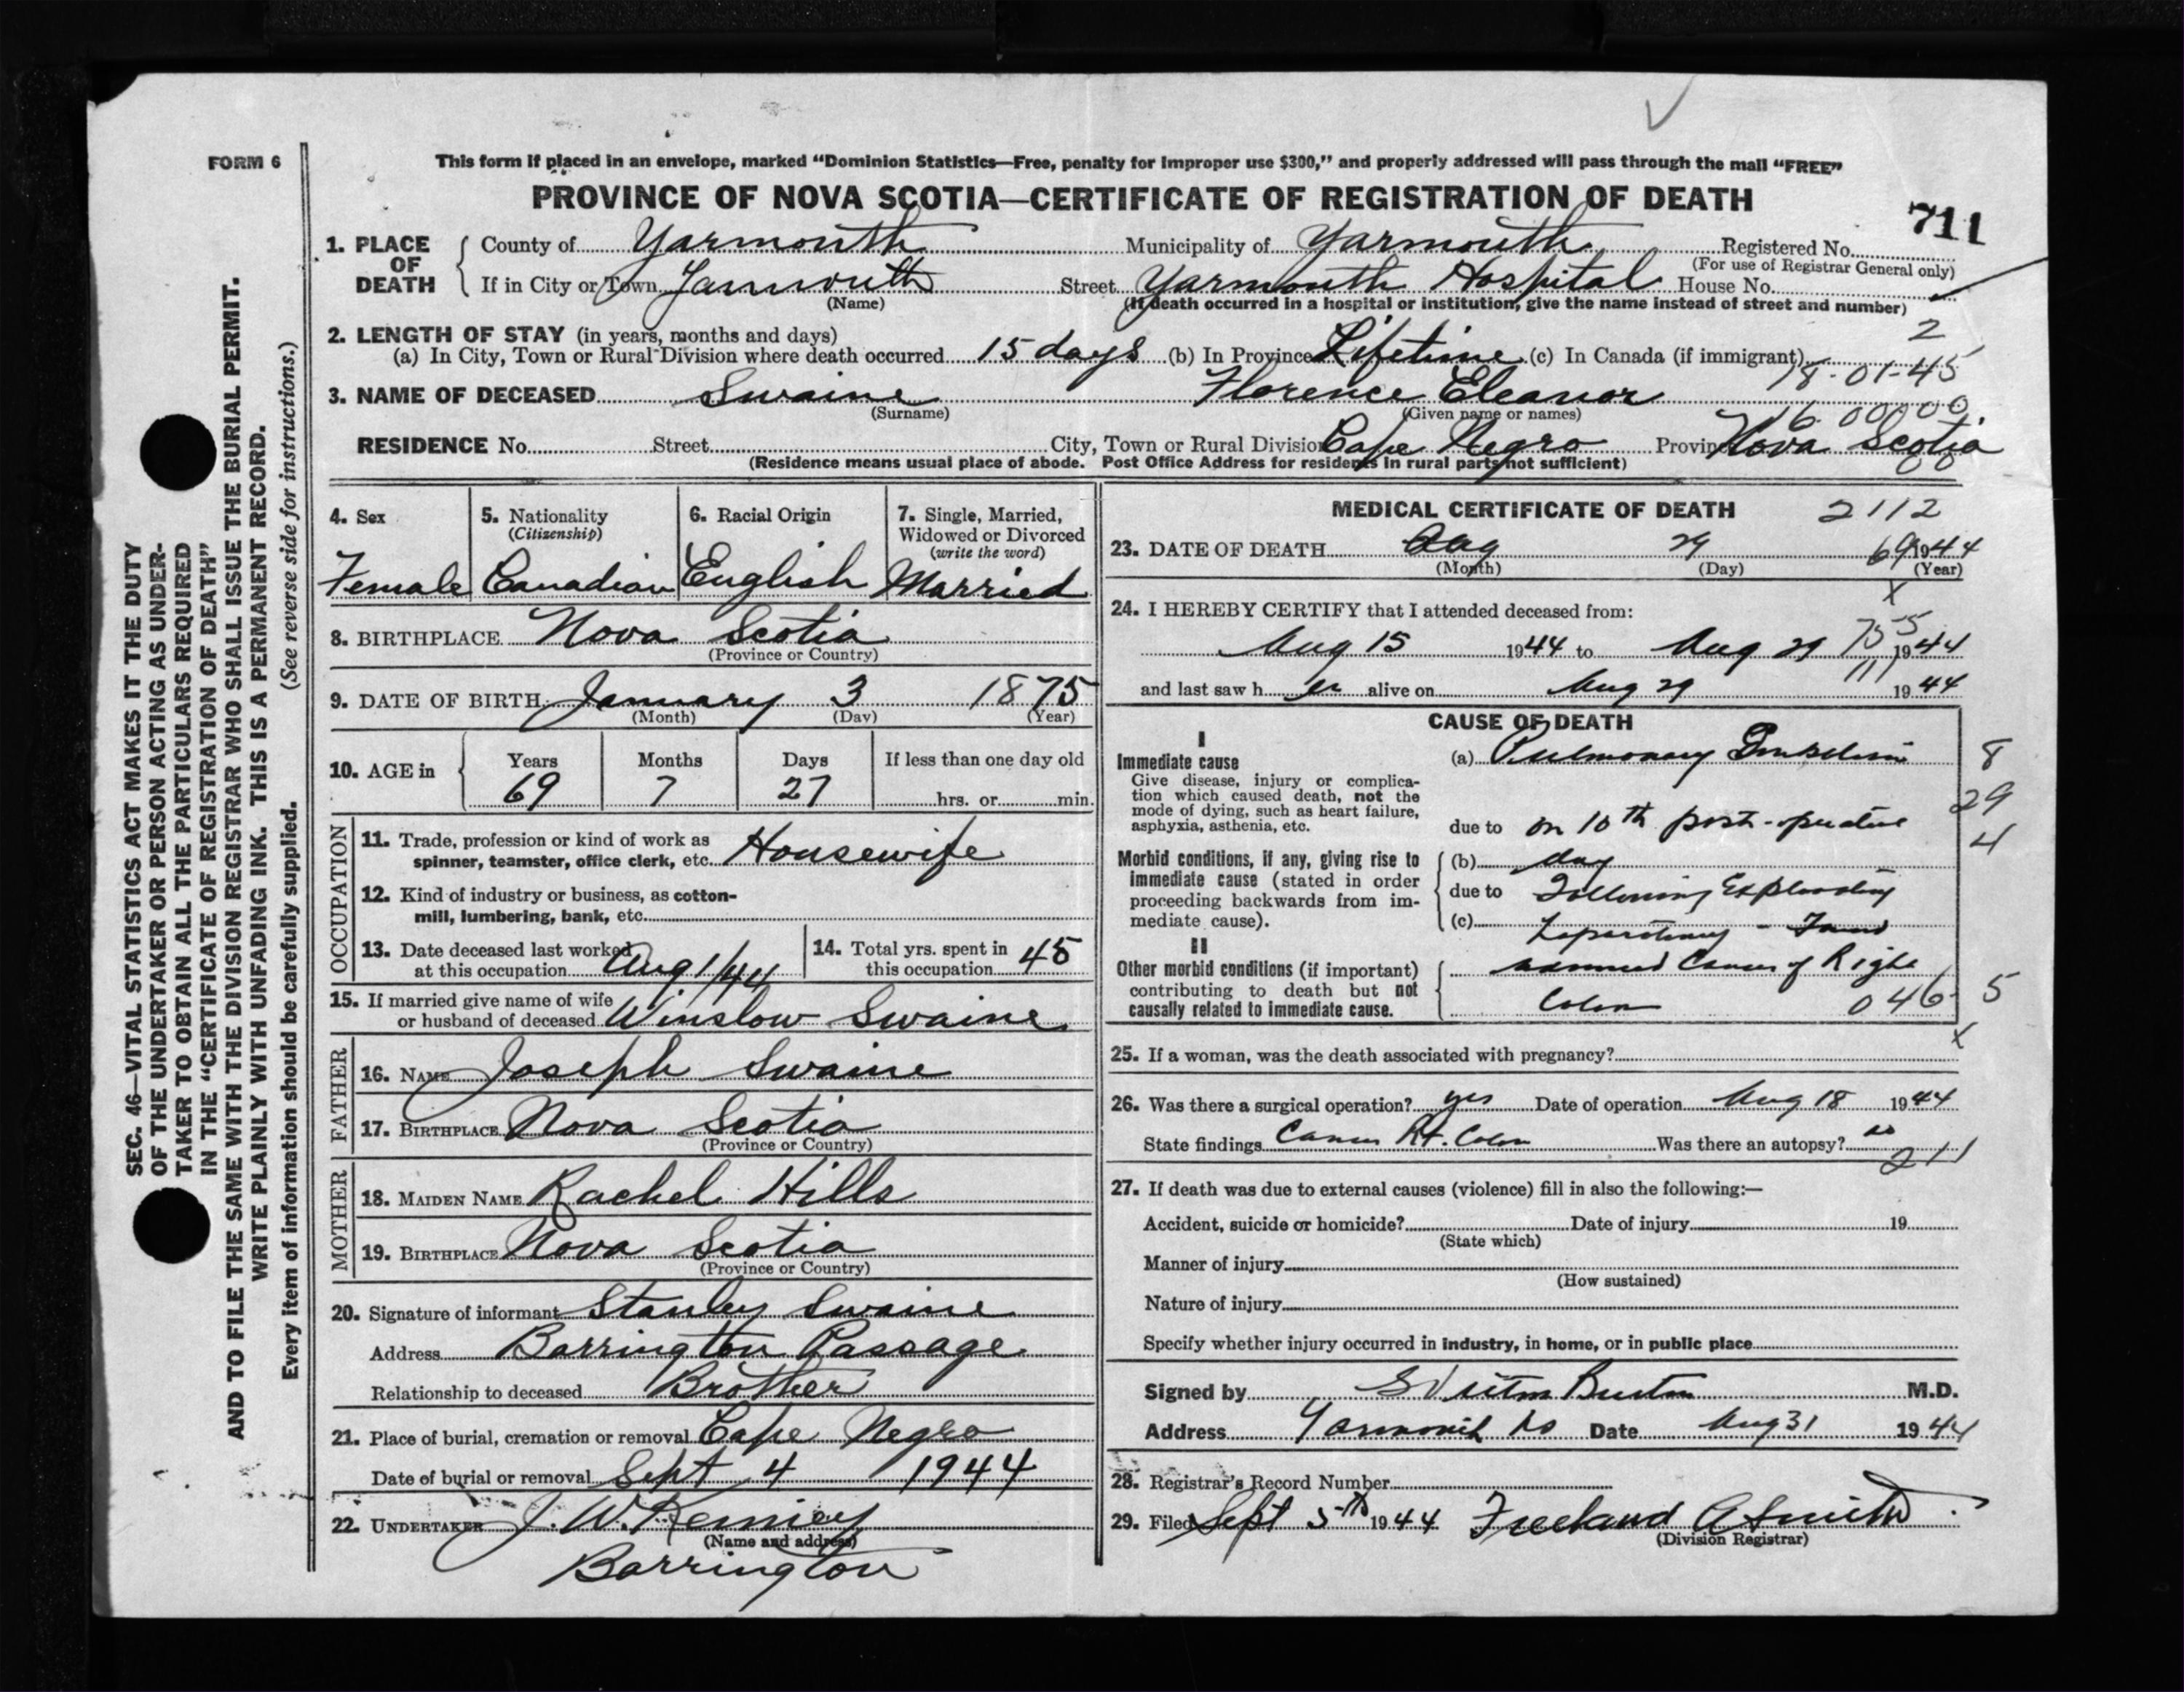 FORM 6
This form if placed in an envelope, marked "Dominion Statistics—Free, penalty for improper use $300," and properly addressed will pass through the mail "FREE"
PROVINCE OF NOVA SCOTIA—CERTIFICATE OF REGISTRATION OF DEATH
711
1. PLACE OF DEATH
County of Yarmouth Municipality of Yarmouth Registered No.
(For use of Registrar General only)
If in City or Town Yarmouth Street Yarmouth Hospital House No.
(Name) (If death occurred in a hospital or institution, give the name instead of street and number)
2. LENGTH OF STAY (in years, months and days) 2
(a) In City, Town or Rural Division where death occurred 15 days (b) In Province Lifetime (c) In Canada (if immigrant)
18-01-45
3. NAME OF DECEASED Swaine Florence Eleanor
(Surname) (Given name or names)
RESIDENCE No. Street City, Town or Rural Division Cape Negro Province Nova Scotia
(Residence means usual place of abode. Post Office Address for residents in rural parts not sufficient)
4. Sex 5. Nationality (Citizenship) 6. Racial Origin 7. Single, Married, Widowed or Divorced (write the word)
Female Canadian English Married
8. BIRTHPLACE Nova Scotia
(Province or Country)
9. DATE OF BIRTH January 3 1875
(Month) (Day) (Year)
10. AGE in Years Months Days If less than one day old
69 7 27 hrs. or min.
OCCUPATION
11. Trade, profession or kind of work as
spinner, teamster, office clerk, etc. Housewife
12. Kind of industry or business, as cotton-
mill, lumbering, bank, etc.
13. Date deceased last worked
at this occupation Aug 1/44
14. Total yrs. spent in
this occupation 45
15. If married give name of wife
or husband of deceased Winslow Swaine
FATHER
16. NAME Joseph Swaine
17. BIRTHPLACE Nova Scotia
(Province or Country)
MOTHER
18. MAIDEN NAME Rachel Hills
19. BIRTHPLACE Nova Scotia
(Province or Country)
20. Signature of informant Stanley Swaine
Address Barrington Passage
Relationship to deceased Brother
21. Place of burial, cremation or removal Cape Negro
Date of burial or removal Sept 4 1944
22. UNDERTAKER J. W. Kenney
(Name and address)
Barrington
MEDICAL CERTIFICATE OF DEATH 2112
23. DATE OF DEATH Aug 29 69 1944
(Month) (Day) (Year)
24. I HEREBY CERTIFY that I attended deceased from:
Aug 15 1944 to Aug 29 1944
and last saw h er alive on Aug 29 1944
CAUSE OF DEATH
I
Immediate cause
Give disease, injury or complica-
tion which caused death, not the
mode of dying, such as heart failure,
asphyxia, asthenia, etc.
(a) Pulmonary Embolism 8
29
due to on 10th post-operative
4
Morbid conditions, if any, giving rise to
immediate cause (stated in order
proceeding backwards from im-
mediate cause).
(b) day
due to Following Exploratory
(c) Laparotomy - Found
II
Other morbid conditions (if important)
contributing to death but not
causally related to immediate cause.
Cancer of Right
Colon 046 5
25. If a woman, was the death associated with pregnancy?
26. Was there a surgical operation? yes Date of operation Aug 18 1944
State findings Cancer Rt. Colon Was there an autopsy? no
211
27. If death was due to external causes (violence) fill in also the following:—
Accident, suicide or homicide? Date of injury 19
(State which)
Manner of injury
(How sustained)
Nature of injury
Specify whether injury occurred in industry, in home, or in public place
Signed by Burton M.D.
Address Yarmouth NS Date Aug 31 1944
28. Registrar's Record Number
29. Filed Sept 5th 1944 Freeland A Smith
(Division Registrar)
SEC. 46—VITAL STATISTICS ACT MAKES IT THE DUTY
OF THE UNDERTAKER OR PERSON ACTING AS UNDER-
TAKER TO OBTAIN ALL THE PARTICULARS REQUIRED
IN THE "CERTIFICATE OF REGISTRATION OF DEATH"
AND TO FILE THE SAME WITH THE DIVISION REGISTRAR WHO SHALL ISSUE THE BURIAL PERMIT.
WRITE PLAINLY WITH UNFADING INK. THIS IS A PERMANENT RECORD.
Every item of information should be carefully supplied. (See reverse side for instructions.)